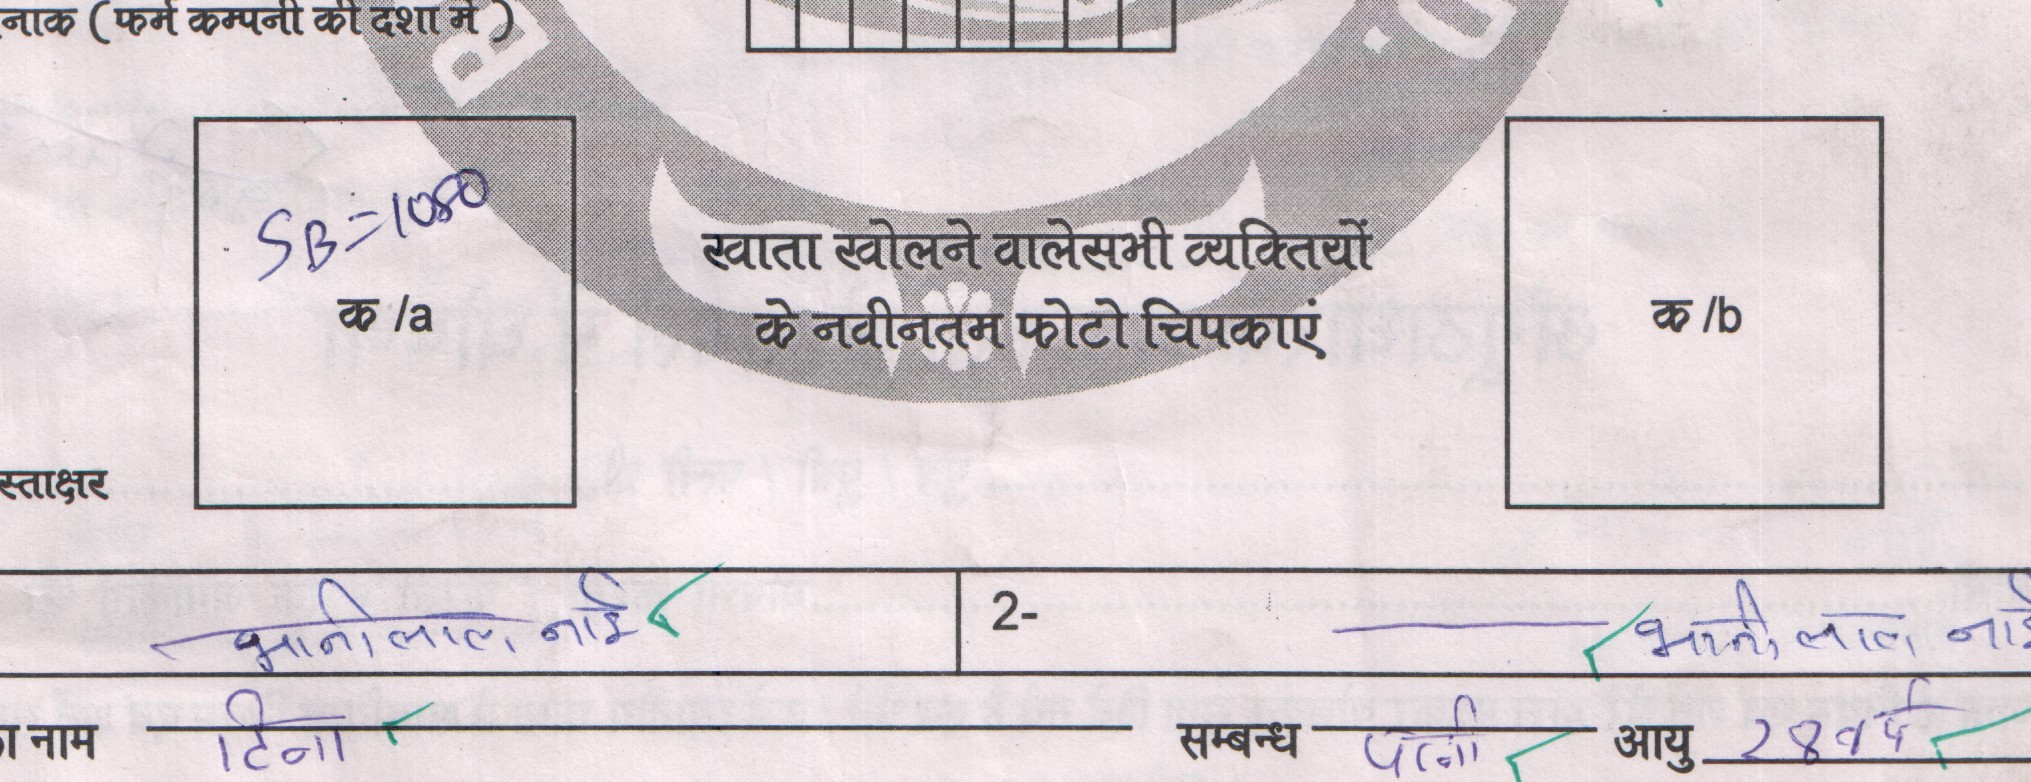 नाक ( फर्म कम्पनी की दशा में )
SB=1080
खाता खोलने वालेसभी व्यक्तियों
के नवीनतम फोटो चिपकाएं
क /a
क /b
स्ताक्षर
भानीलाल नाई 2- भानीलाल नाई
ा नाम टिना सम्बन्ध पत्नी आयु 28 वर्ष